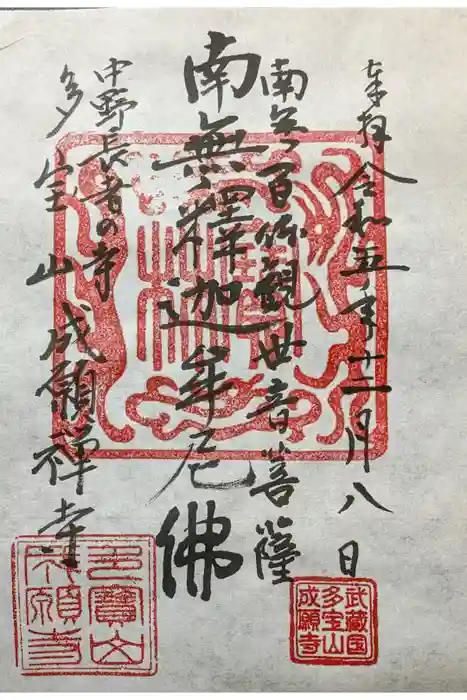 奉拝 令和五年十二月八日
南無百体観世音菩薩
南無釋迦牟尼佛
中野長者の寺
多宝山 成願禅寺
武蔵国
多宝山
成願寺
多寳山
成願寺